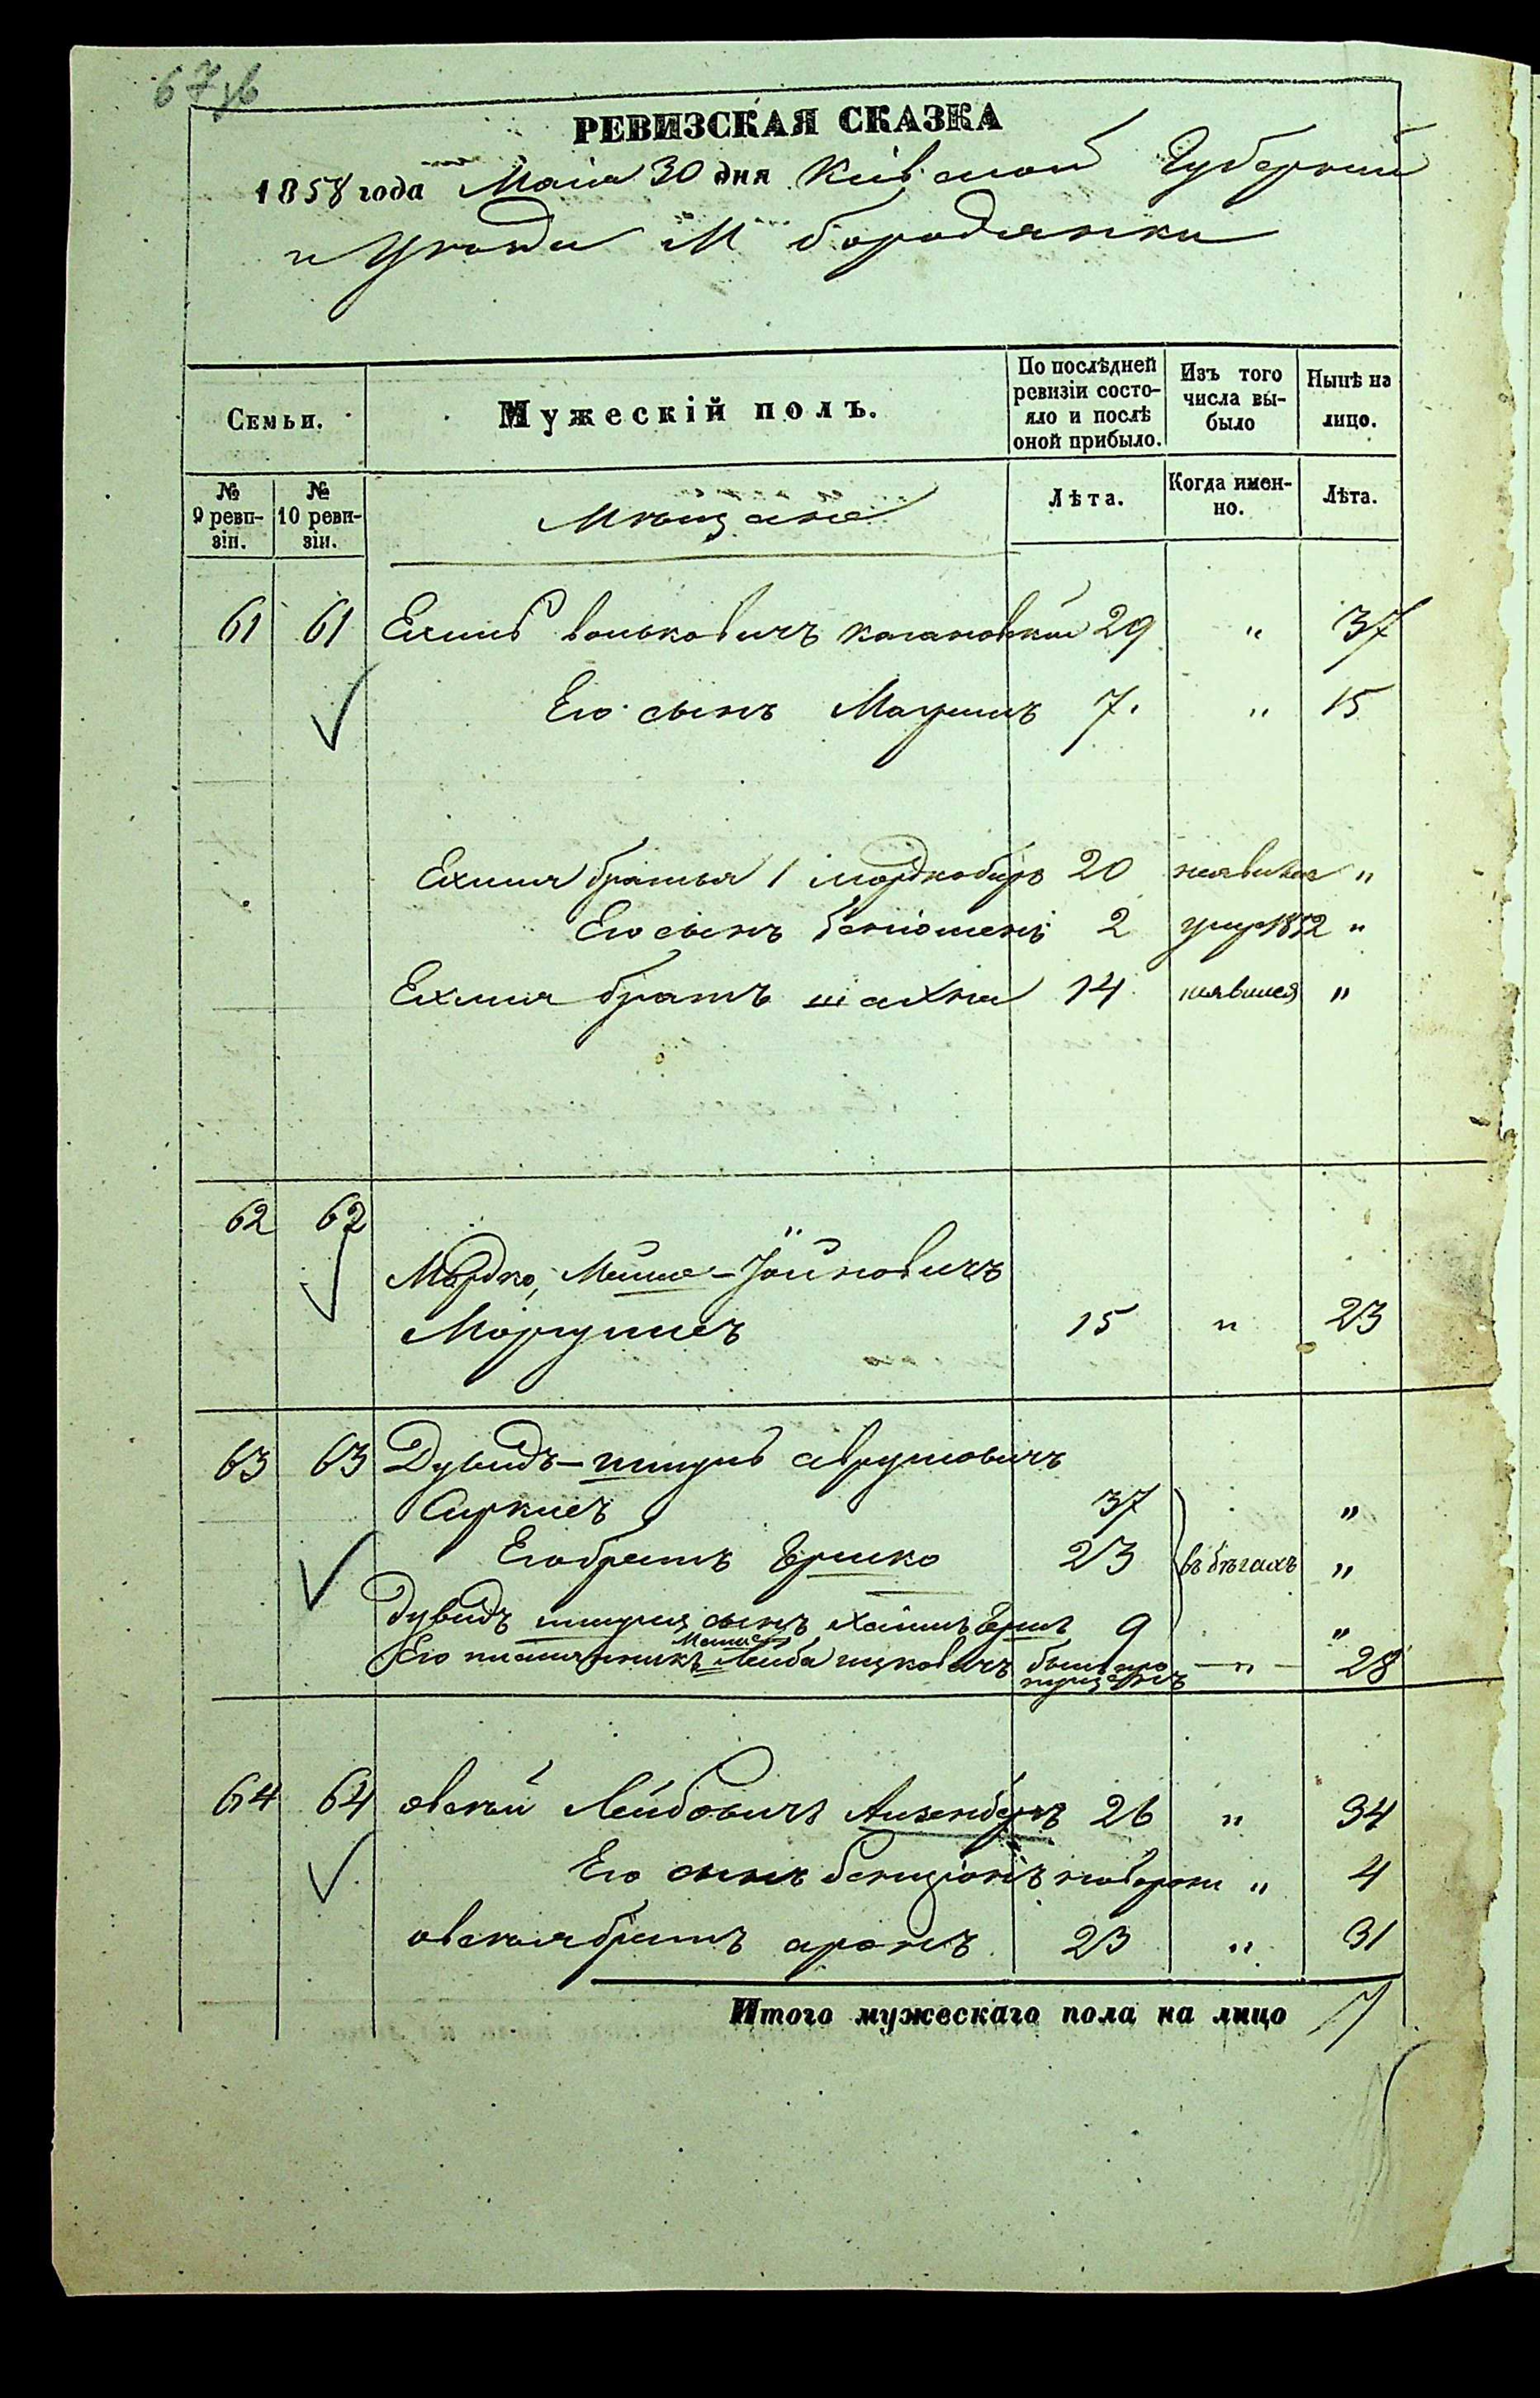 67 об
РЕВИЗСКАЯ СКАЗКА
1858 года Маія 30 дня Кіевской Губерніи
и Уезда М Бородянки
Семьи.
Мужескій полъ.
По послѣдней ревизіи состо-яло и послѣ оной прибыло.
Изъ того числа вы-было
Нынѣ на лицо.
№ 9 реви-зіи.
№ 10 реви-зіи.
Мѣщане
Лѣта.
Когда имен-но.
Лѣта.
61 61 Ехиль Вольковичъ Кагановскій 29 " 37
Его сынъ 7. " 15
Ехиля братья 1 Мордко 20 неявился "
Его сынъ 2 умер 1852 "
Ехиля братъ Шахна 14 неявился "
62 62
Мордко, Мошко-Іойновичъ
Моргулисъ 15 " 23
63 63 Дувидъ-Шмуль Аврумовичъ
Сиркисъ 37 "
Его братъ Ершко 23 въ бѣгахъ "
Дувидъ Шмуля сынъ Хаимъ Ершъ 9 "
Его племянникъ Лейба Ицковичъ былъ пропущенъ —"— 28
64 64 Овсѣй Лейбовичъ Аизенбергъ 26 " 34
Его сынъ Бенціонъ новорож " 4
Овсѣя братъ Аронъ 23 " 31
Итого мужескаго пола на лицо 7